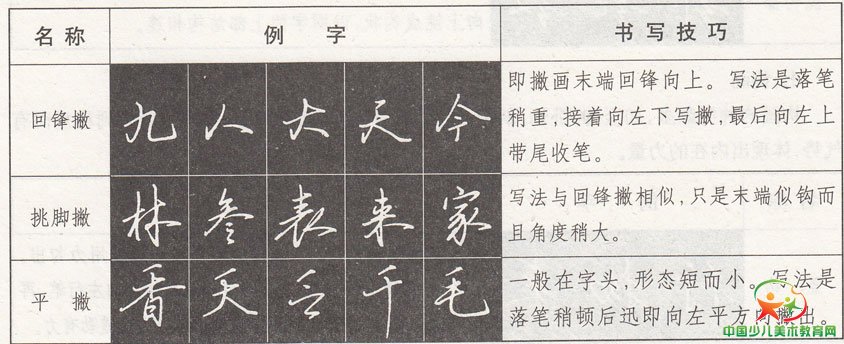 名称 例字 书写技巧
回锋撇 九 人 大 天 今
即撇画末端回锋向上。写法是落笔
稍重,接着向左下写撇,最后向左上
带尾收笔。
挑脚撇 林 参 表 来 家
写法与回锋撇相似,只是末端似钩而
且角度稍大。
平撇 香 夭 乏 千 毛
一般在字头,形态短而小。写法是
落笔稍顿后迅即向左平方向撇出。
中国少儿美术教育网